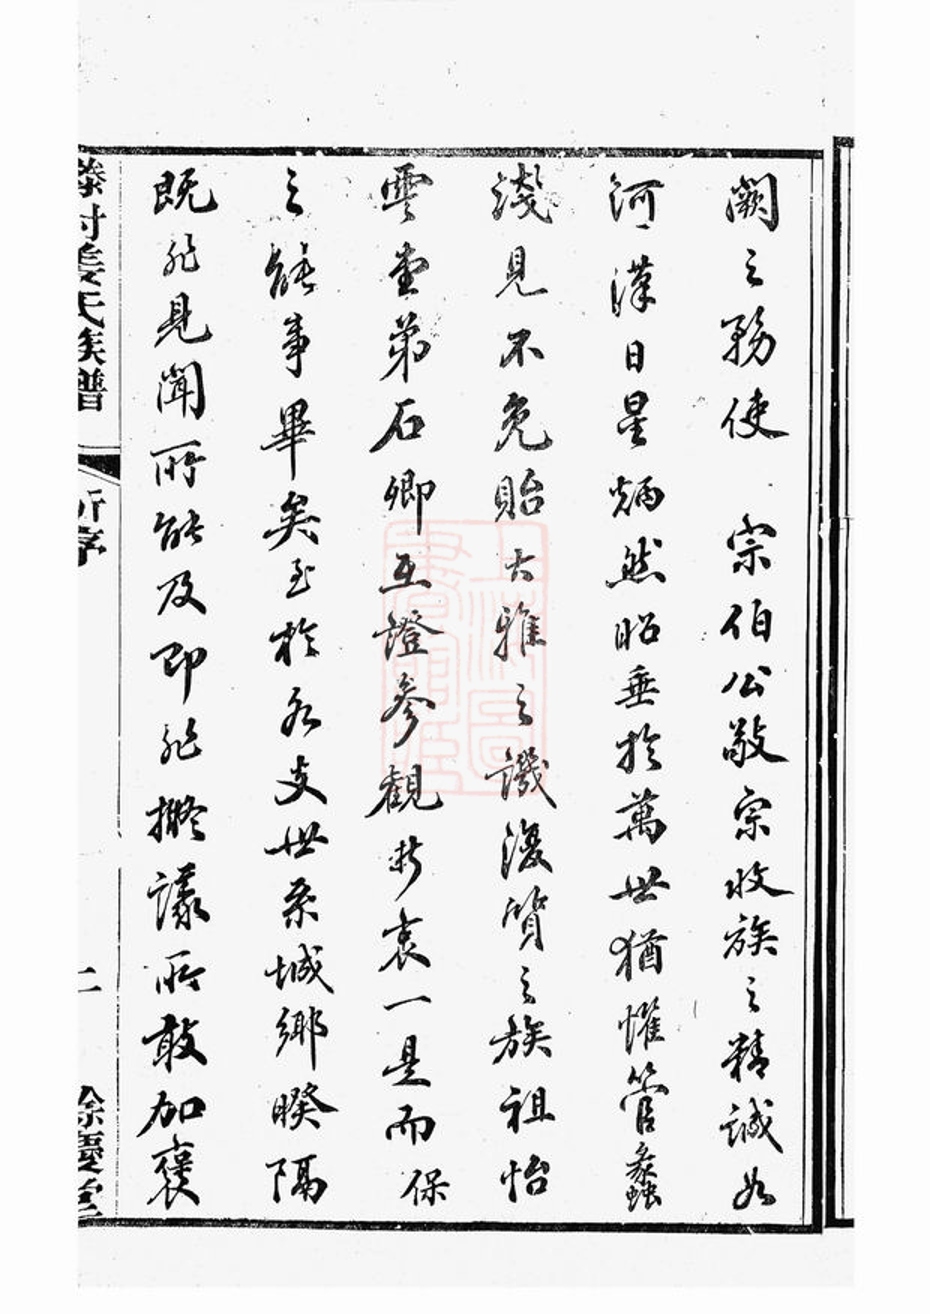 闕之務使　宗伯公敬宗收族之精誠如
河漢日星炳然昭垂於萬世猶懼管蠡
淺見不免貽大雅之譏復質之族祖怡
雲堂弟石卿互證參觀折衷一是而保
之能事畢矣至於各支世系城鄉暌隔
既非見聞所能及即非擬議所敢加襃
村姜氏族譜
新序
二
餘慶堂
上海圖書館藏